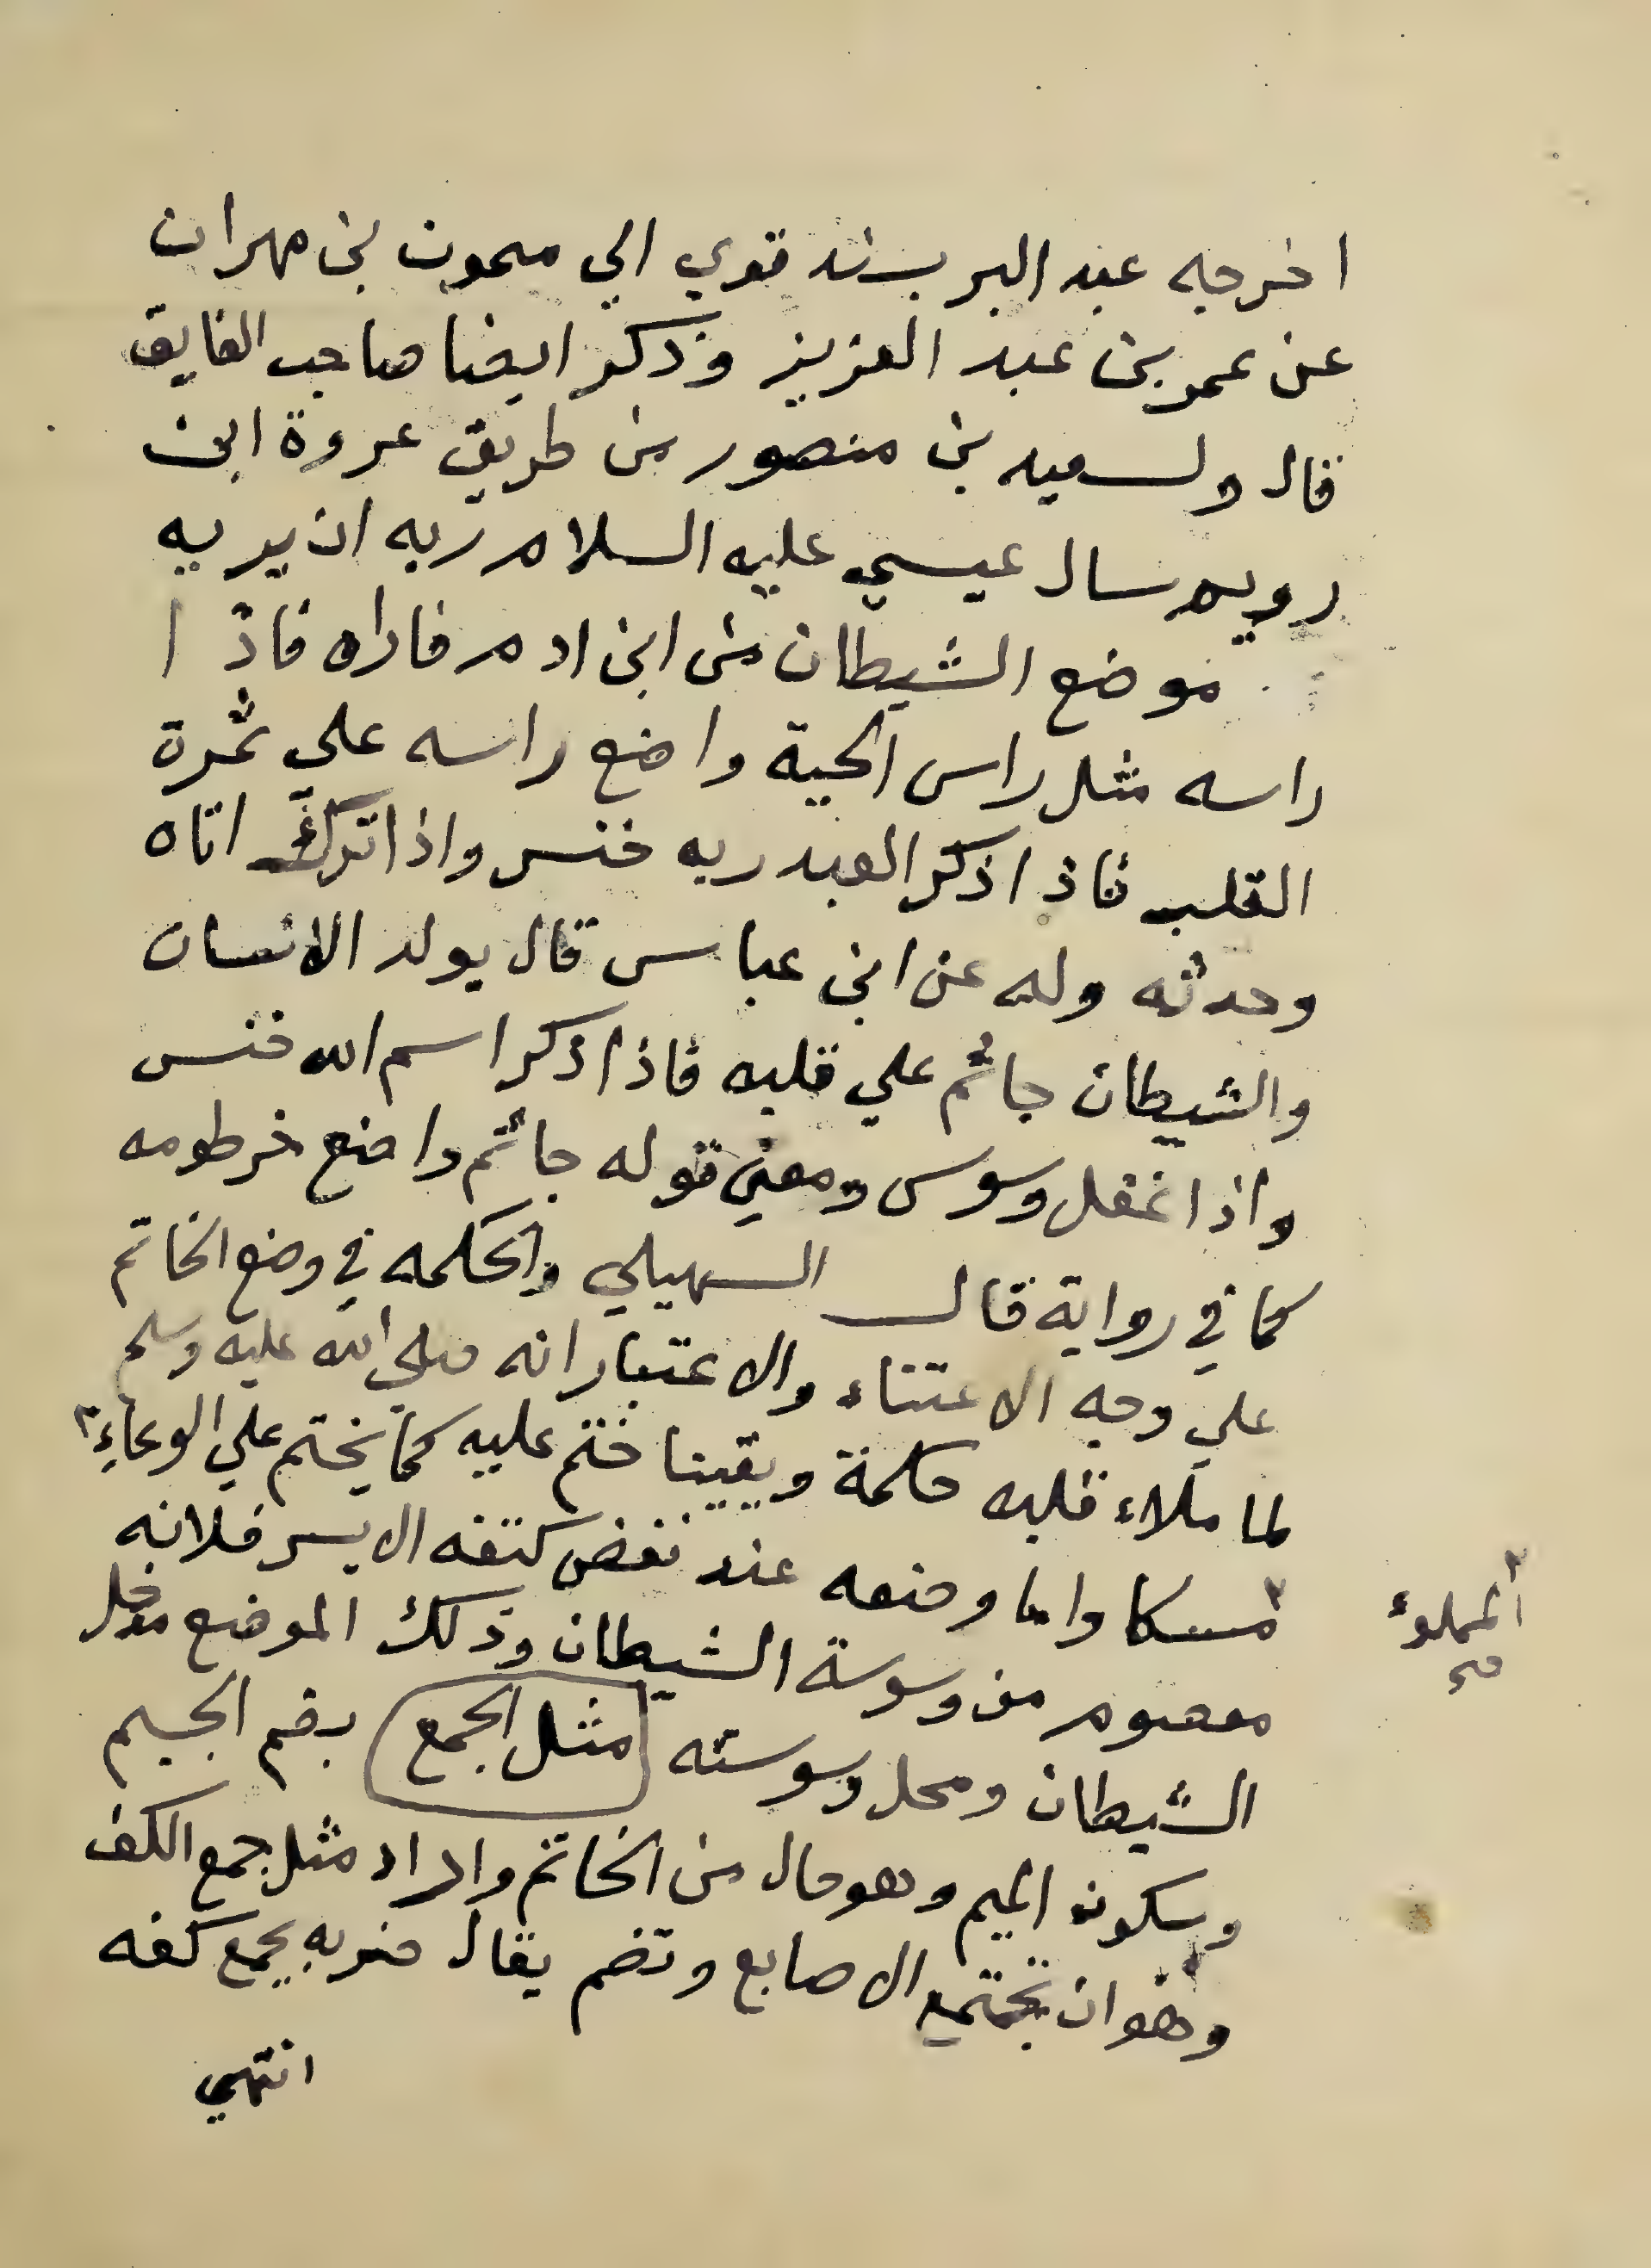 اخرجه عبد البر بسند قوي الي ميمون بن مهران
عن عمر بن عبد العزيز وذكر ايضا صاحب الفايق
قال ولسعيد بن منصور من طريق عروة ابن
رويم سال عيسي عليه السلام ربه ان يريه
موضع الشيطان من ابن ادم فاراه فاذ ا
راسه مثل راس الحية واضع راسه علي ثمرة
القلب فاذ اذكر العبد ربه خنس واذا ترك اتاه
وحدثه وله عن ابن عباس قال يولد الانسان
والشيطان جاثم علي قلبه فاذا اذكر اسم الله خنس
واذا غفل وسوس ومعني قوله جاثم واضع خرطومه
كما في رواية قال السهيلي والحكمه في وضع الخاتم
علي وجه الاعتناء والاعتبار انه صلي الله عليه وسلم
لما ملاء قلبه حكمة ويقينا ختم عليه كما يختم علي الوعاء
المملوء
صح
مسكا واما وضعه عند نغض كتفه الايسر فلانه
معصوم من وسوسة الشيطان وذلك الموضع مدخل
الشيطان ومحل وسوسته مثل الجمع بضم الجيم
وسكون الميم وهو حال من الخاتم واراد مثل جمع الكف
وهو ان تجتمع الاصابع وتضم يقال ضربه بجمع كفه
انتهي